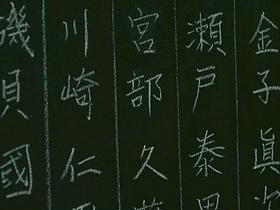 金子眞
瀬戸泰
宮部久
川崎仁
磯貝國